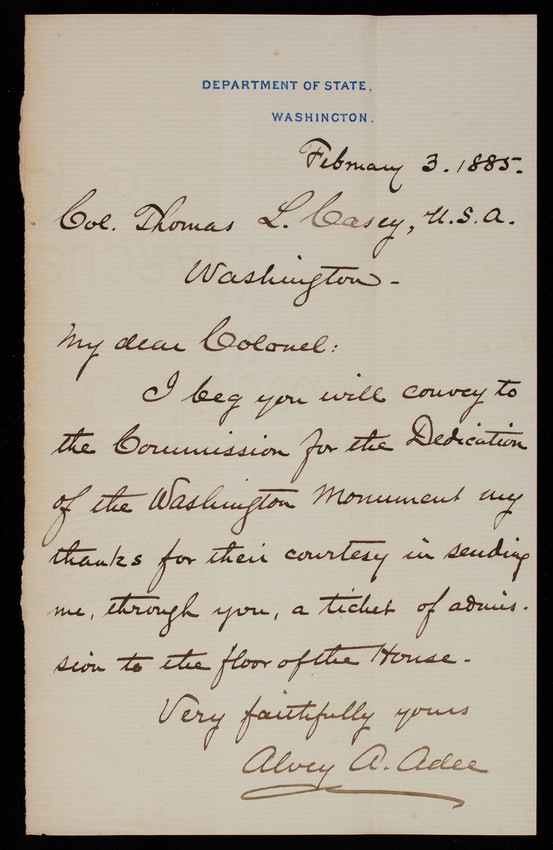 DEPARTMENT OF STATE,
WASHINGTON.
February 3. 1885.
Col. Thomas L. Casey, U.S.A.
Washington -
My dear Colonel:
I beg you will convey to
the Commission for the Dedication
of the Washington Monument my
thanks for their courtesy in sending
me, through you, a ticket of admis-
sion to the floor of the House.
Very faithfully yours
Alvey A. Adee